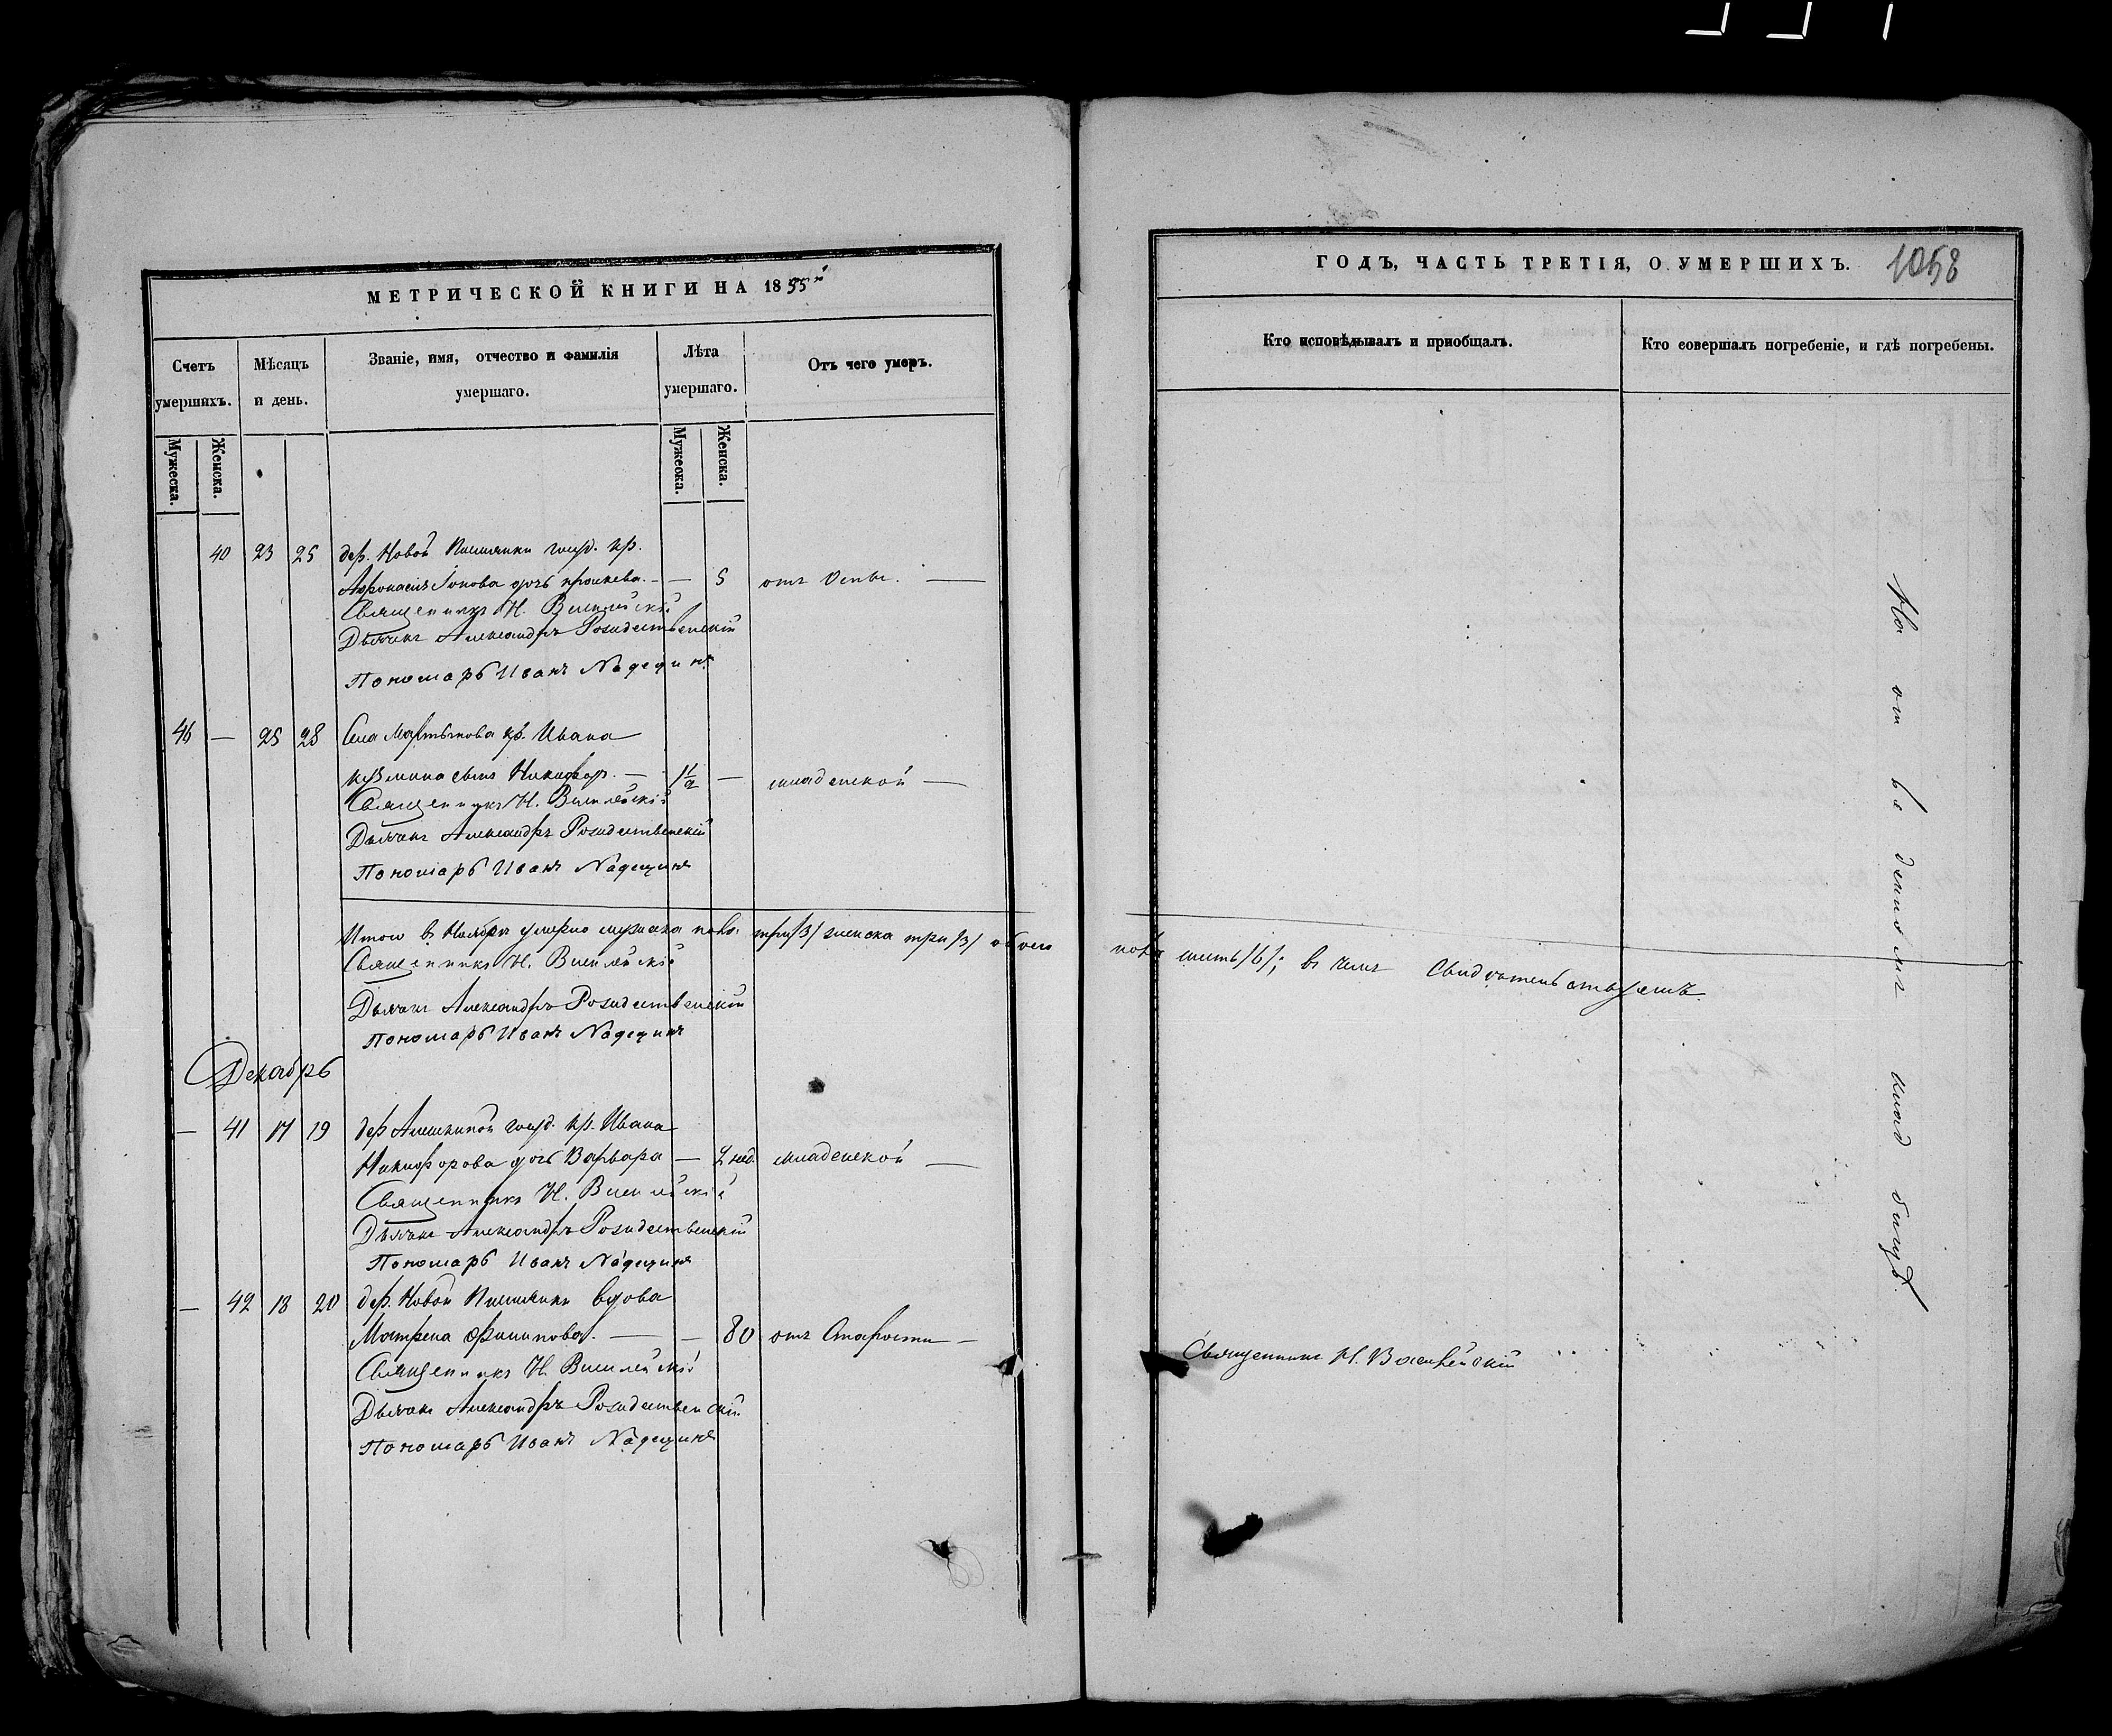 МЕТРИЧЕСКОЙ КНИГИ НА 1855й
Счетъ умершихъ.
Мѣсяцъ и день.
Званіе, имя, отчество и фамилія умершаго.
Лѣта умершаго.
Отъ чего умеръ.
Мужеска.
Женска.
Мужеска.
Женска.
40 23 25 дер. Новой госуд. кр.
Іонова дочь — 5 отъ Оспы. —
Священникъ Н.
Дьячекъ Александръ Рождественскій
Пономарь Иванъ Надеждинъ
46 — 25 28 Села кр. Ивана
Кузмина сынъ Никифоръ. — 1 1/2 — младенской —
Священникъ Н.
Дьячекъ Александръ Рождественскій
Пономарь Иванъ Надеждинъ
Итого въ Ноябрѣ умерло мужеска пола три /3/ женска три /3/ обоего
Священникъ Н.
Дьячекъ Александръ Рождественскій
Пономарь Иванъ Надеждинъ
Декабрь
— 41 17 19 дер. Алешкиной госуд. кр. Ивана
Никифорова дочь Варвара — 2 нед. младенской —
Священникъ Н.
Дьячекъ Александръ Рождественскій
Пономарь Иванъ Надеждинъ
— 42 18 20 дер. Новой вдова
Матрена Филипова. — — 80 отъ Старости —
Священникъ Н.
Дьячекъ Александръ Рождественскій
Пономарь Иванъ Надеждинъ
ГОДЪ, ЧАСТЬ ТРЕТІЯ, О УМЕРШИХЪ.
1058
Кто исповѣдывалъ и пріобщалъ.
Кто совершалъ погребеніе, и гдѣ погребены.
пола шесть /6/; въ чемъ свидѣтельствуемъ.
Священникъ Н.